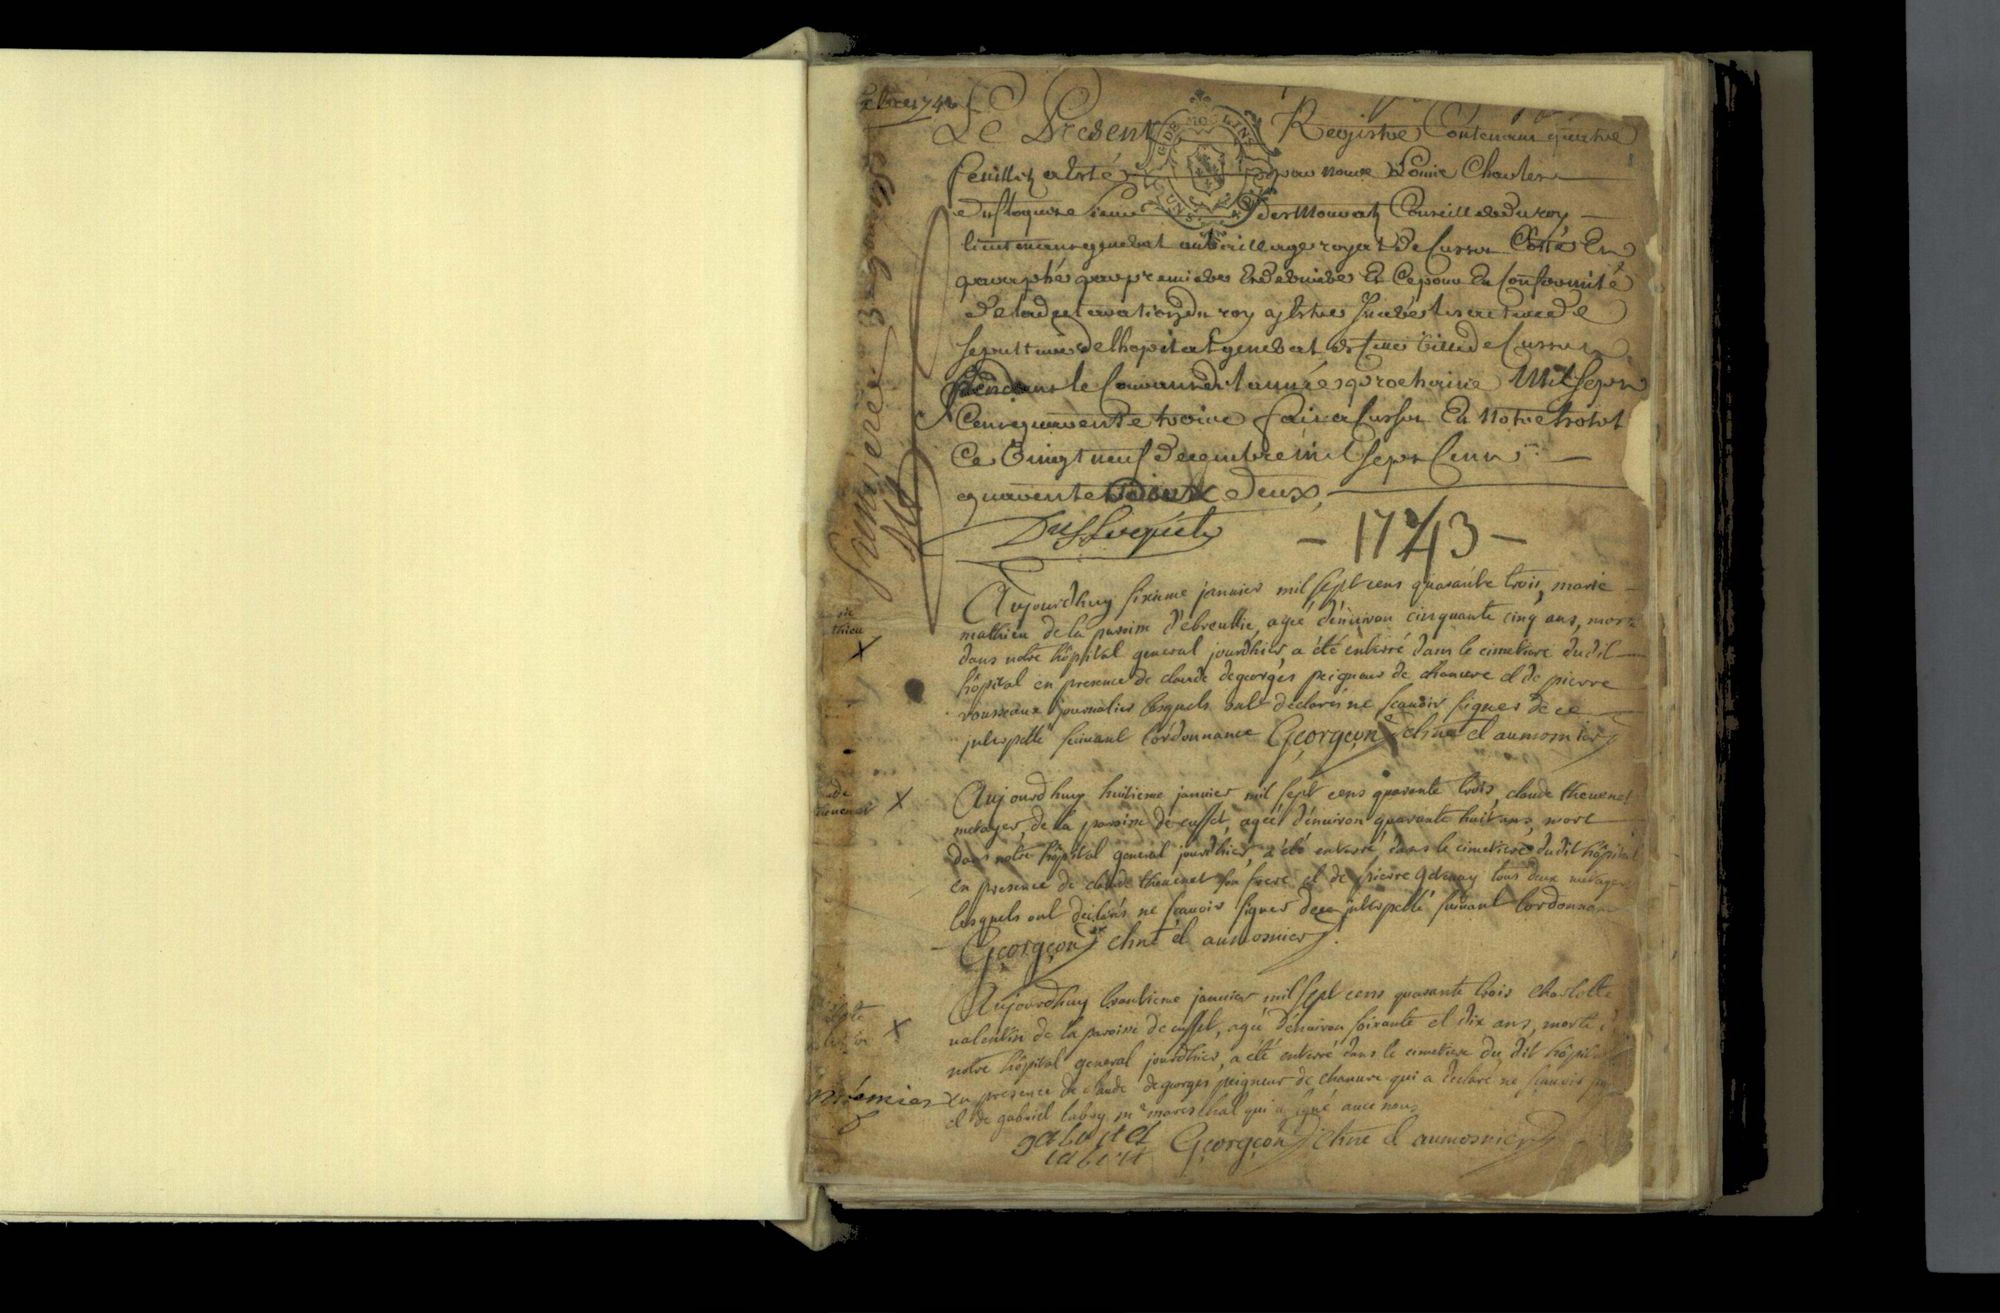 Le Present Registre Contenant quatre
feuillets a esté par nous Louis Charles
sieur des Mouvats Conseiller du roy
lieutenant general au bailliage royal de Cusset Cotté Et
paraphé par premiere Et derniere Et Ce pour En Conformité
De la declaration du roy estre Inserés les actes de
sepulture de lhopital general de cette Ville de Cusset
Pendant le Courant de lannée prochaine Mil Sept
Cent quarente trois fait a Cusset En Notre hotel
Ce Vingt neuf Decembre mil Sept Cent
quarente deux
- 1743 -
Aujourdhuy sixieme janvier mil sept cens quarante trois, marie
mathieu de la paroisse d'ebreuille, agée d'enuiron cinquante cinq ans, morte
dans notre hôpital general jourdhier, a été enterré dans le cimetiere dudit
hôpital en presence de claude degeorges peigneur de chanure et de pierre
rousseaux journalier lesquels ont déclarés ne scauoir signer de ce
interpellé suiuant lordonnance Georgeon chne et aumosnier
thieu
X
Aujourdhuy huitieme janvier mil sept cens quarante trois, claude theuenet
metayer, de la paroisse de cusset, agée d'enuiron quarante huit ans, mort
dans notre hôpital general jourdhier, a été enterré dans le cimetiere dudit hôpital
en presence de claude theuenet son frere et de pierre tous deux metayers
lesquels ont déclarés ne scauoir signer de ce interpellé suiuant lordonnance
Georgeon chne et aumosnier
X
Aujourdhuy trentieme janvier mil sept cens quarante trois charlotte
ualentin de la paroisse de cusset, agée d'enuiron soixante et dix ans, morte
notre hôpital general jourdhier, a été enterré dans le cimetiere du dit hôpital
en presence de claude degeorges peigneur de chanure qui a declaré ne scauoir
et de gabriel labry me mareschal qui a signé auec nous
X
premier
gabriel Georgeon chne et aumosnier